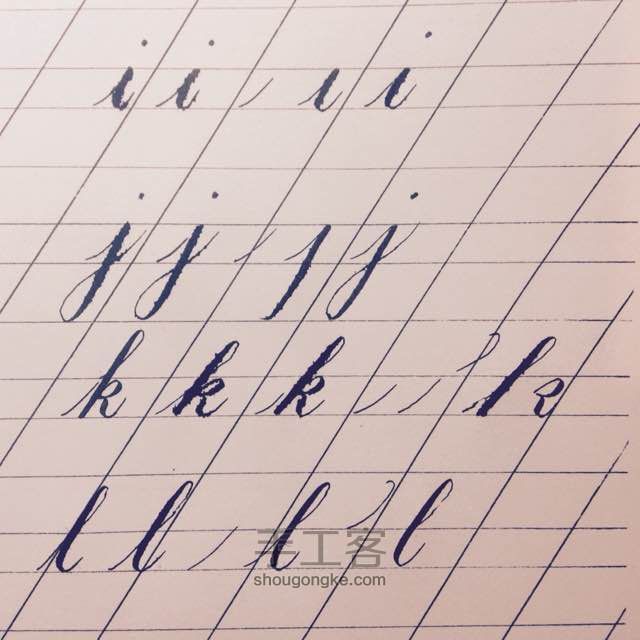 i i ı i
j j ȷ j
k k k k
l l l l
手工客
shougongke.com